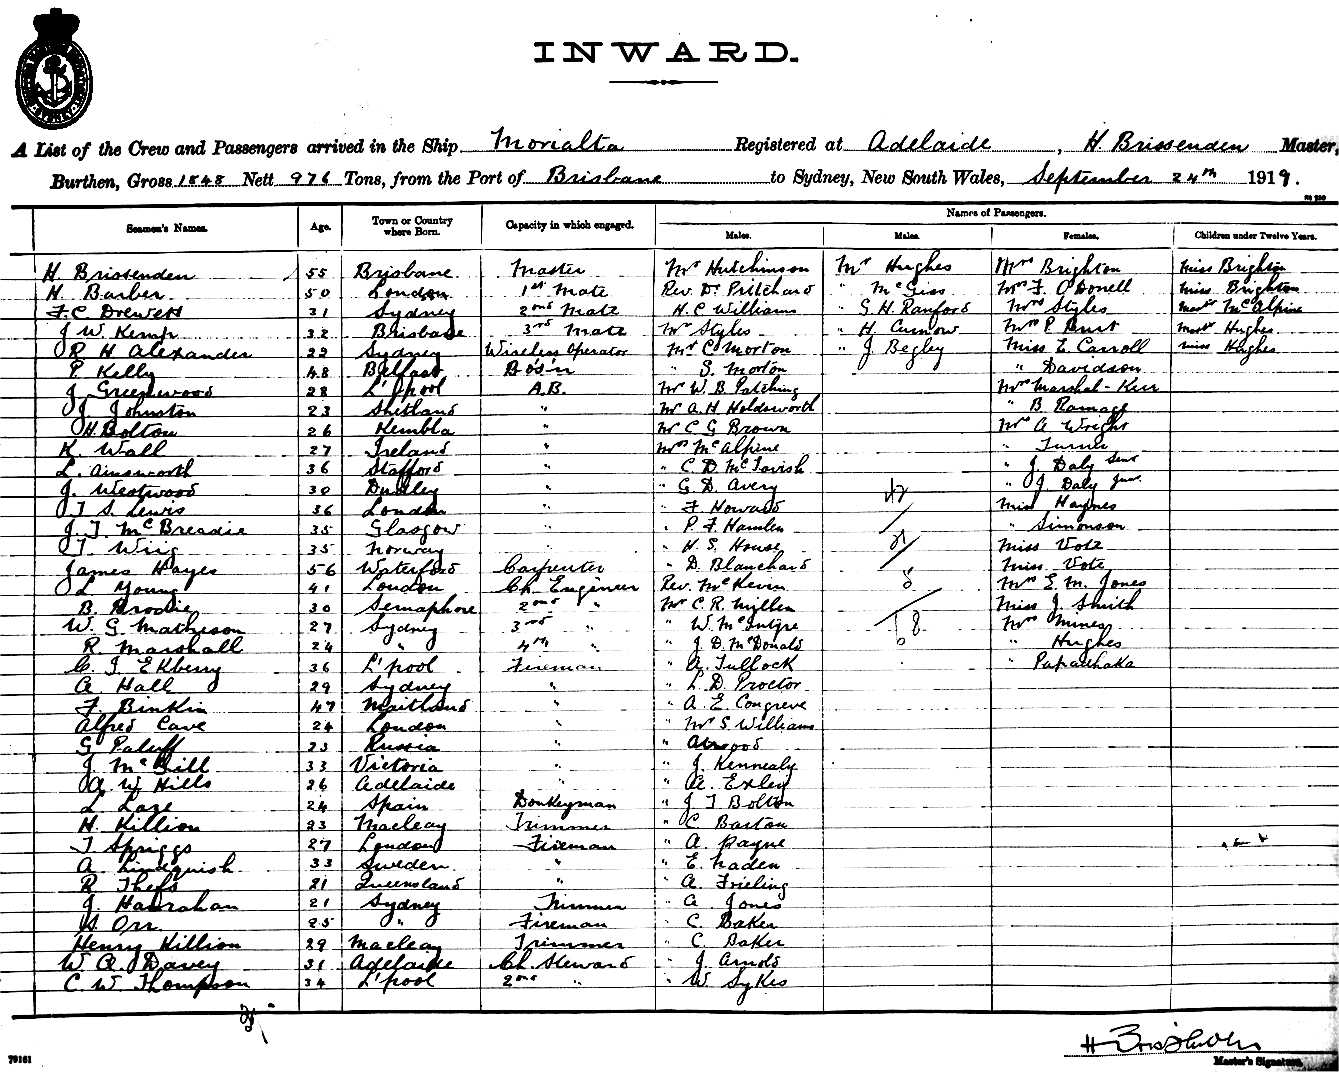 INWARD.
A List of the Crew and Passengers arrived in the Ship Morialta Registered at Adelaide, H. Brissenden Master,
Burthen, Gross 1848 Nett 976 Tons, from the Port of Brisbane to Sydney, New South Wales, September 24th 1919.
Names of Passengers.
Seamen's Names. Age. Town or Country where Born. Capacity in which engaged. Males. Males. Females. Children under Twelve Years.
H. Brissenden 55 Brisbane Master Mr Hutchinson Mr Hughes Mrs Brighton Miss Brighton
H. Barber 50 London 1st Mate Rev. Dr Pritchard " McGiss Mrs F. O'Donell Miss Brighton
F. C. Drewett 31 Sydney 2nd Mate H. C Williams " G. H. Ranford Mrs Styles Mastr McAlpine
J W. Kemp 32 Brisbane 3rd Mate Mr Styles " H. Curnow Mrs P. Burt Mastr Hughes
R H Alexander 22 Sydney Wireless Operator Mr C. Morton " J. Begley Miss E. Carroll Miss Hughes
P Kelly 48 Belfast Bo's'n " S. Morton " Davidson
J Greenwood 28 L'pool A.B. Mr W. B Patching Mrs Marshal-Kerr
J Johnston 23 Shetland " Mr A. H Holdsworth " B. Ramage
H. Bolton 26 Kembla " Mr C G Brown Mrs A Wright
K. Wall 27 Ireland " Mrs McAlpine "
L. Ainsworth 36 Stafford " " C D. McTavish " J. Daly Senr
J. Westwood 30 Dudley " " G. D. Avery " J Daly Junr
T S. Lewis 36 London " " F. Howard Miss Haynes
J. T. McBreadie 35 Glasgow " " P. F. Hamlen " Simonson
T. Wiig 35 Norway " " H. S. House Miss Vote
James Hayes 56 Waterford Carpenter " D. Blanchard Miss Vote
L Young 41 London Ch. Engineer Rev. McKevin Mrs E. M. Jones
B. Brodie 30 Semaphore 2nd " Mr C. R. Millen Miss J. Smith
W. G Matheson 27 Sydney 3rd " " W. McIntyre Mrs Mines
R. Marshall 24 " 4th " " J. D. McDonald " Hughes
C. J Ekberry 36 L'pool Fireman " A. Tullock " Papashaka
A. Hall 29 Sydney " " L. D. Proctor
F. Binkin 47 Maitland " " A. E. Congreve
Alfred Cave 24 London " " Mr S Williams
G 23 Russia " " Atwood
J. McGill 33 Victoria " " J. Kennealy
A. W Hills 26 Adelaide " A. Exley
L 24 Spain Donkeyman " J T Bolton
H. Killion 23 Macleay Trimmer " C. Barton
T Spriggs 27 London Fireman " A. Payne
A. Lindquish 33 Sweden " " E. Naden
R. 21 Queensland " " A. Frieling
J. Hanrahan 21 Sydney Trimmer " A. Jones
Orr 25 " Fireman " C. Baker
Henry Killion 29 Macleay Trimmer " C. Baker
W. A. Davey 31 Adelaide Ch. Steward " J. Arnold
C. W. Thompson 34 L'pool 2nd " " W Sykes
Master's Signature.
79161